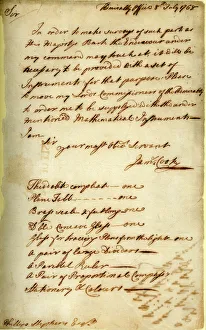 Sir
Admiralty Office 8 July 1768
In order to make surveys of such parts as
His Majestys Bark the Endeavour under
my command may touch at it will be
necessary to be provided with a set of
Instruments for that purpose. Please
to move my Lords Commissioners of the Admiralty
in order me to be supplyed with the under
mentioned Mathematical Instruments
I am
Sir
your most Hble Servent
Jam.s Cook
Theodolite compleat — one
Plane Table — one
Brass scale 2 feet long one
Double Concave Glass — one
Glass for traceing Plans from the light one
a pair of large Dividers —
a Parallel Ruler —
a Pair of Proportional Compasses
Stationary & Colours —
Phillip Stephens Esq.r